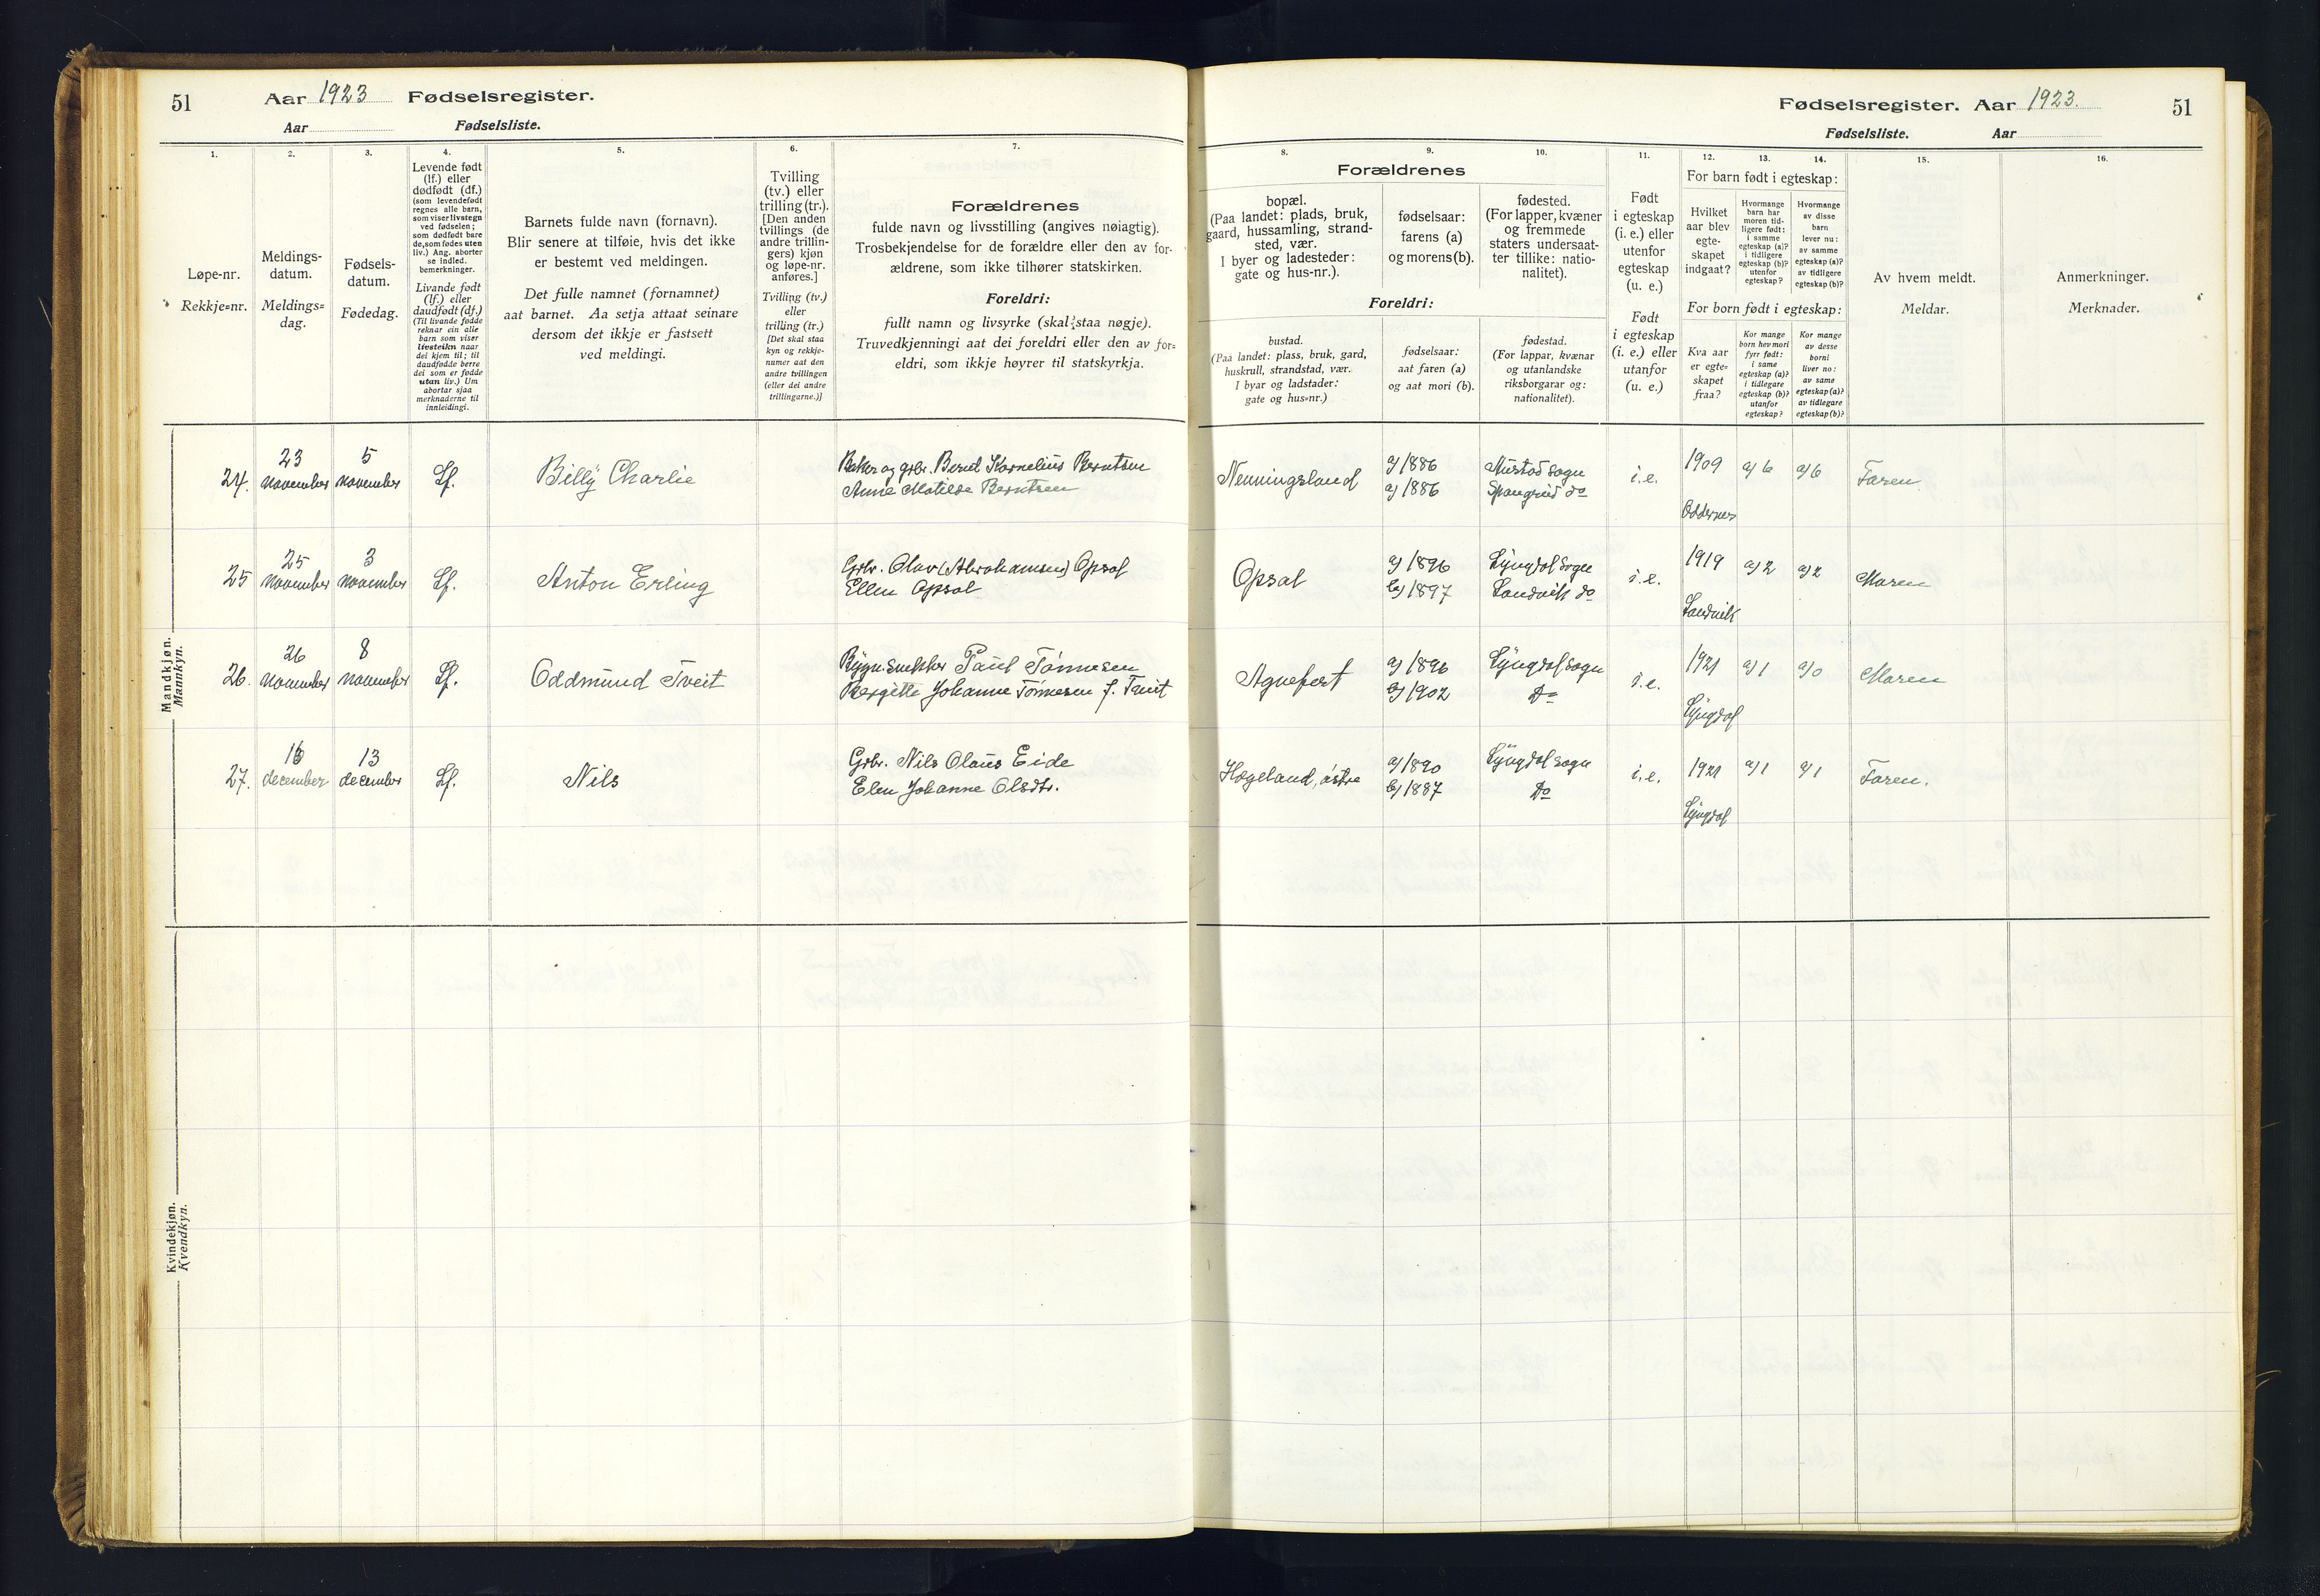 51 Aar 1923 Fødselsregister.
Aar Fødselsliste.
Fødselsregister. Aar 1923. 51
Fødselsliste. Aar
1.
Løpe-nr.
Rekkje=nr.
2.
Meldings-
datum.
Meldings=
dag.
3.
Fødsels-
datum.
Fødedag.
4.
Levende født
(lf.) eller
dødfødt (df.)
(som levendefødt
regnes alle barn,
som viser livstegn
ved fødselen;
som dødfødt bare
de, som fødes uten
liv.) Ang. aborter
se indled.
bemerkninger.
Livande født
(lf.) eller
daudfødt (df.)
(Til livande fødde
reknar ein alle
barn som viser
livsteikn naar
dei kjem til; til
daudfødde berre
dei som er fødde
utan liv.) Um
abortar sjaa
merknaderne til
innleidingi.
5.
Barnets fulde navn (fornavn).
Blir senere at tilføie, hvis det ikke
er bestemt ved meldingen.
Det fulle namnet (fornamnet)
aat barnet. Aa setja attaat seinare
dersom det ikkje er fastsett
ved meldingi.
6.
Tvilling
(tv.) eller
trilling (tr.).
[Den anden
tvillings (de
andre trillin-
gers) kjøn
og løpe-nr.
anføres.]
Tvilling (tv.)
eller
trilling (tr.)
[Det skal staa
kyn og rekkje-
numer aat den
andre tvillingen
(eller dei andre
trillingarne.)]
7.
Forældrenes
fulde navn og livsstilling (angives nøiagtig).
Trosbekjendelse for de forældre eller den av for-
ældrene, som ikke tilhører statskirken.
Foreldri:
fullt namn og livsyrke (skal staa nøgje).
Truvedkjenningi aat dei foreldri eller den av for=
eldri, som ikkje høyrer til statskyrkja.
8. 9. 10.
Forældrenes
bopæl.
(Paa landet: plads, bruk,
gaard, hussamling, strand-
sted, vær.
I byer og ladesteder:
gate og hus-nr.).
fødselsaar:
farens (a)
og morens (b).
fødested.
(For lapper, kvæner
og fremmede
staters undersaat-
ter tillike: natio-
nalitet).
Foreldri:
bustad.
(Paa landet: plass, bruk, gard,
huskrull, strandstad, vær.
I byar og ladstader:
gate og hus=nr.)
fødselsaar:
aat faren (a)
og aat mori (b).
fødestad.
(For lappar, kvænar
og utanlandske
riksborgarar og:
nationalitet).
11.
Født
i egteskap
(i. e.) eller
utenfor
egteskap
(u. e.)
Født
i egteskap
(i. e.) eller
utanfor
(u. e.)
12. 13. 14.
For barn født i egteskap:
Hvilket
aar blev
egte-
skapet
indgaat?
Hvormange
barn har
moren tid-
ligere født:
i samme
egteskap (a)?
i tidligere
egteskap (b)?
utenfor
egteskap?
Hvormange
av disse
barn
lever nu:
av samme
egteskap (a)?
av tidligere
egteskap (b)?
For born født i egteskap:
Kva aar
er egte=
skapet
fraa?
Kor mange
born hev mori
fyrr født:
i same
egteskap (a)?
i tidlegare
egteskap (b)?
utanfor
egteskap?
Kor mange
av desse
borni
liver no:
av same
egteskap (a)?
av tidlegare
egteskap (b)?
15.
Av hvem meldt.
Meldar.
16.
Anmerkninger.
Merknader.
Mandkjøn.
Mannkyn.
24. 23 november 5 november Lf. Billy Charlie
Baker og grbr. Bernt Kornelius Berntsen
Anne Matilde Berntsen
Nenningsland a/1886 a/1886 i.e. 1909 a/6 a/6 Faren
Oddernes
25 25 november 3 november Lf. Anton Erling
Grbr. Olav (Abrahamsen) Opsal
Ellen Opsal
Opsal a/1896 b/1897 Lyngdal sogn
Landvik do i.e. 1919 a/2 a/2 Moren
Landvik
26. 26 november 8 november Lf. Oddmund Tveit
Bygn.snekker Paul Tønnesen
Bergitte Johanne Tønnesen f. Tveit
Agnefest a/1896 b/1902 Lyngdal sogn
Do i.e. 1921 a/1 a/0 Moren
Lyngdal
27. december 13 december Lf. Nils
Grbr. Nils Olaus Eide
Elen Johanne Olsdtr.
Hægeland, østre a/1890 b/1887 Lyngdal sogn
Do i.e. 1921 a/1 a/1 Faren.
Lyngdal
Kvindekjøn.
Kvendkyn.